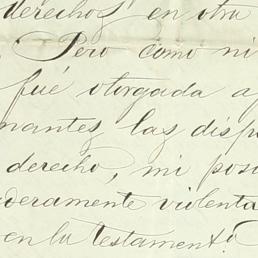 derechos en otra
Pero como ni
fué otorgada a
nantes, las disp
derecho, mi posi
deramente violenta
en la testament.ª